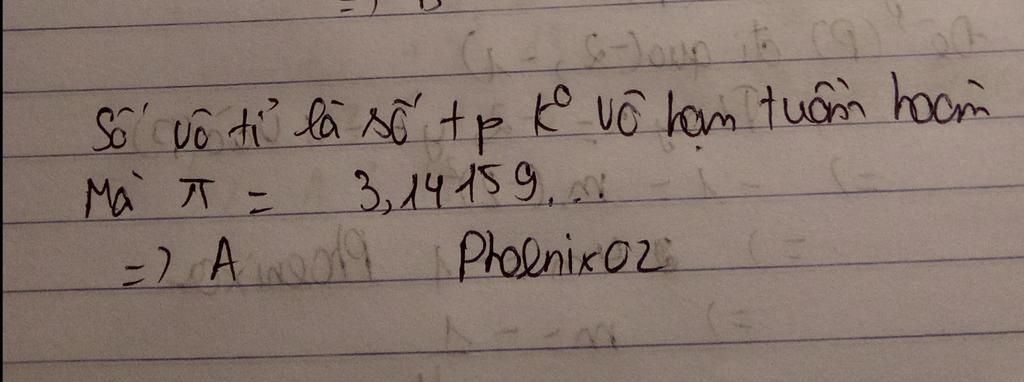 Số vô tỉ là số tp k° vô hạn tuần hoàn
Mà π = 3,14159...
=> A Phoenix02